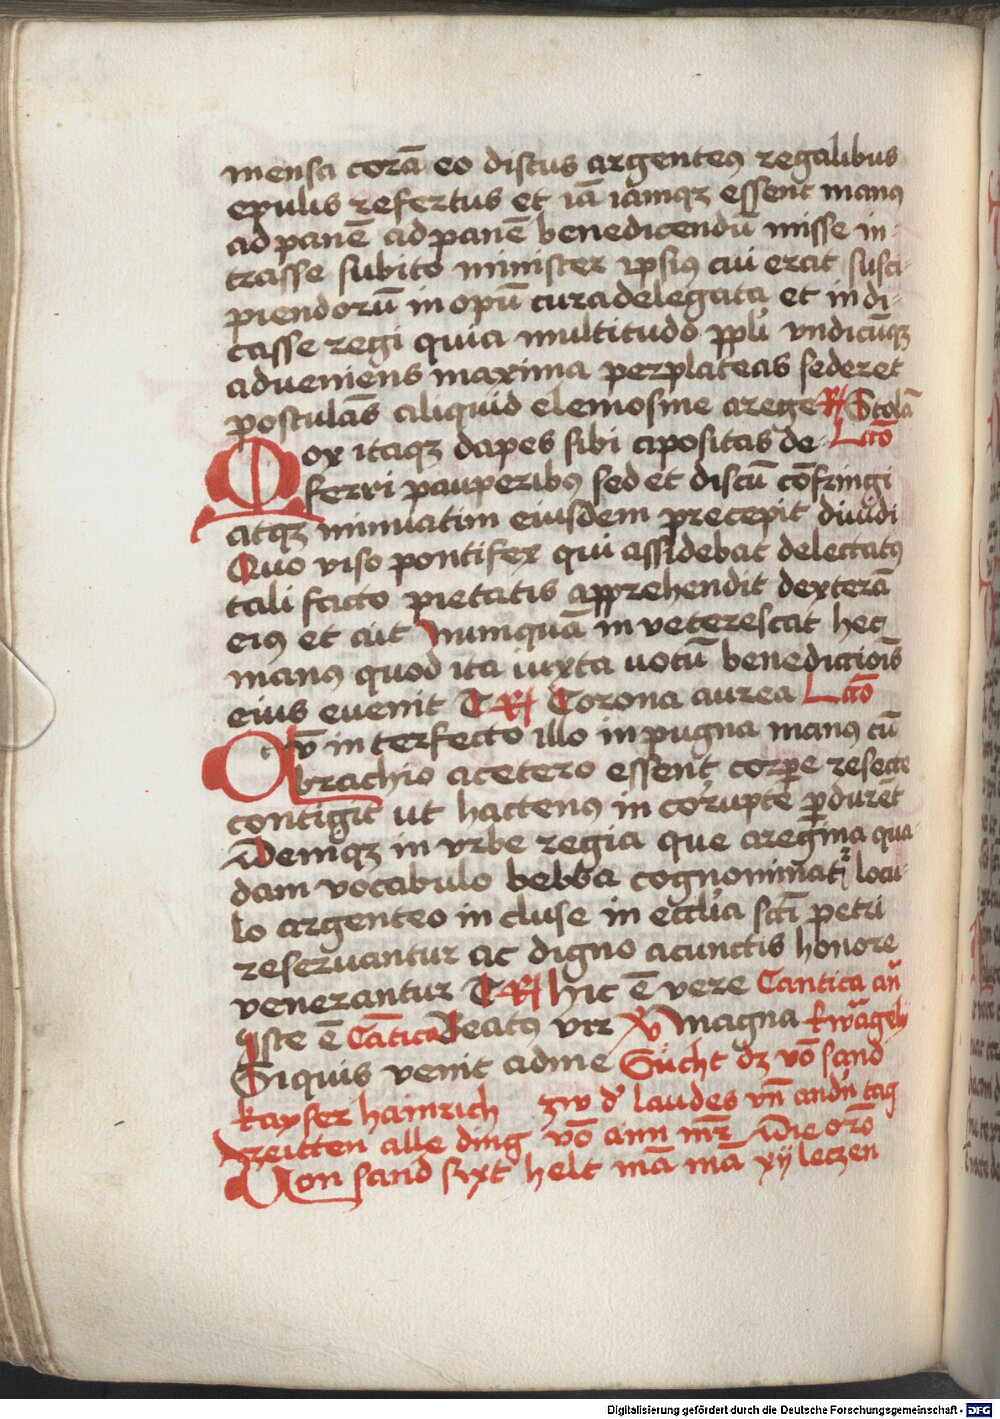 mensa corā eo discus argenteꝰ regalibus
epulis refertus et iā iāmqꝫ essent manꝰ
ad panē ad panē benedicendū misse in-
trasse subito minister ipsiꝰ cui erat susci-
piendorū in opū cura delegata et indi-
casse regi quia multitudo ppl'i vndicūqꝫ
adueniens maxima per plateas sederet
postulās aliquid elemosine a rege R Stolā
Mox itaqꝫ dapes sibi apositas de- Lcō
ferri pauperibꝰ sed et discū cōfringi
atqꝫ minuatim eiusdem precepit diuidi
Quo viso pontifex qui assidebat delectatꝰ
tali facto pietatis apprehendit dexterā
eiꝰ et ait Numquā in veterescat hec
manꝰ quod ita iuxta uotū benedictiōis
eius euenit T R Corona aurea Lcō
Qv̄ interfecto illo in pugna manꝰ cū
brachio a cetero essent corꝑe resecte
contigit ut hactenꝰ in corupte ꝑdurēt
Deniqꝫ in vrbe regia que a regina qua-
dam vocabulo bebba cognominatr̄ locu-
lo argenteo in cluse in eccl'ia scti petri
reseruantur ac digno a cunctis honore
venerantur T R Hic ē vere Cantica an̄
Iste ē Cātica Beatꝰ vir V Magna
Siquis venit ad me Sücht dꝫ vō sand
kayser hainrich zw d' laudes vn̄ andn̄ tag
zeitten alle ding vō ainn mr̄ Die orō
Von sand sixt helt mā mā xij leczen